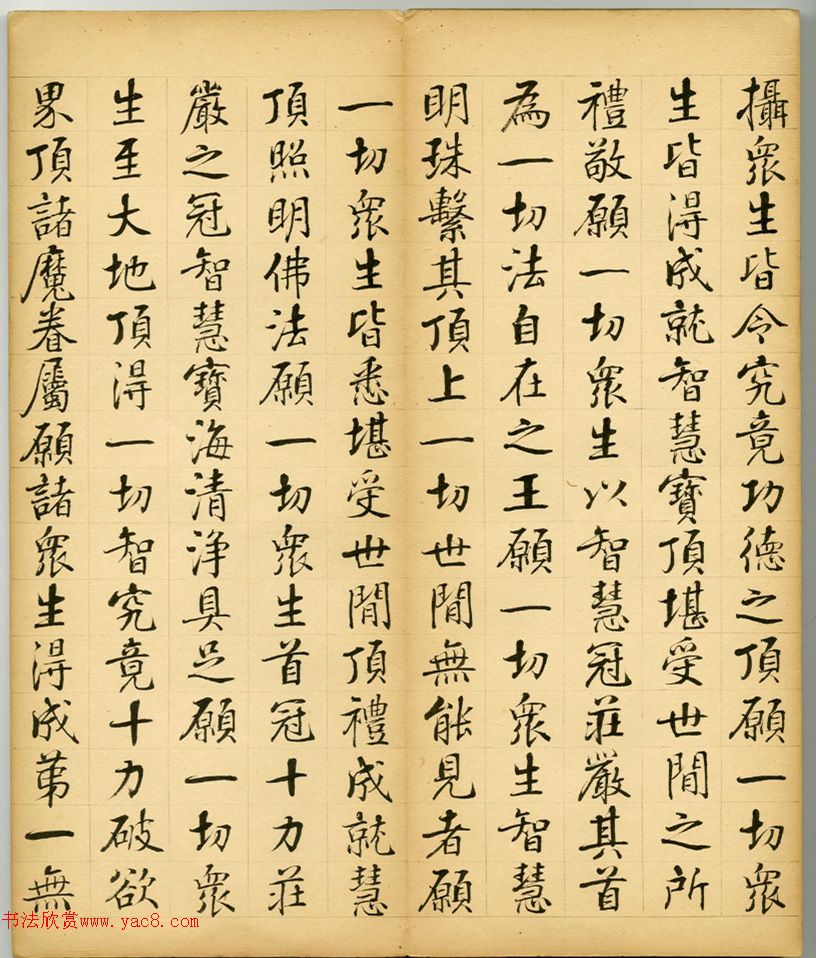 攝眾生皆令究竟功德之頂願一切眾
生皆得成就智慧寶頂堪受世間之所
禮敬願一切眾生以智慧冠莊嚴其首
為一切法自在之王願一切眾生智慧
明珠繫其頂上一切世間無能見者願
一切眾生皆悉堪受世間頂禮成就慧
頂照明佛法願一切眾生首冠十力莊
嚴之冠智慧寶海清淨具足願一切眾
生至大地頂得一切智究竟十力破欲
界頂諸魔眷屬願諸眾生得成第一無
书法欣赏www.yac8.com